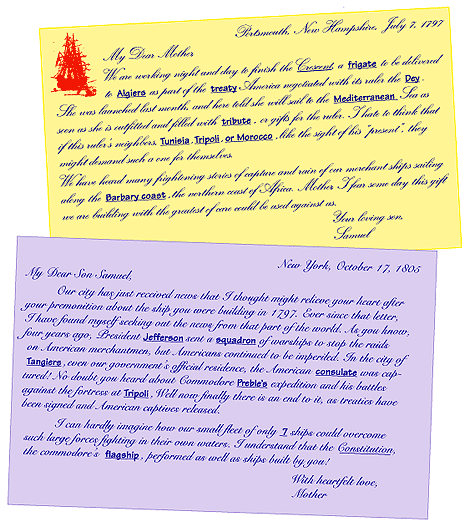 Portsmouth, New Hampshire, July 7, 1797
My Dear Mother
We are working night and day to finish the Crescent, a frigate to be delivered
to Algiers as part of the treaty America negotiated with its ruler the Dey.
She was launched last month, and here told she will sail to the Mediterranean Sea as
soon as she is outfitted and filled with tribute, or gifts for the ruler. I hate to think that
if this ruler's neighbors, Tunisia, Tripoli, or Morocco, like the sight of his "present", they
might demand such a one for themselves.
We have heard many frightening stories of capture and ruin of our merchant ships sailing
along the Barbary coast, the northern coast of Africa. Mother, I fear some day this gift
we are building with the greatest of care could be used against us.
Your loving son,
Samuel
New York, October 17, 1805
My Dear Son Samuel,
Our city has just received news that I thought might relieve your heart after
your premonition about the ship you were building in 1797. Ever since that letter,
I have found myself seeking out the news from that part of the world. As you know,
four years ago, President Jefferson sent a squadron of warships to stop the raids
on American merchantmen, but Americans continued to be imperiled. In the city of
Tangiers, even our government's official residence, the American consulate was cap-
tured! No doubt you heard about Commodore Preble's expedition and his battles
against the fortress at Tripoli. Well now finally there is an end to it, as treaties have
been signed and American captives released.
I can hardly imagine how our small fleet of only 7 ships could overcome
such large forces fighting in their own waters. I understand that the Constitution,
the commodore's flagship, performed as well as ships built by you!
With heartfelt love,
Mother